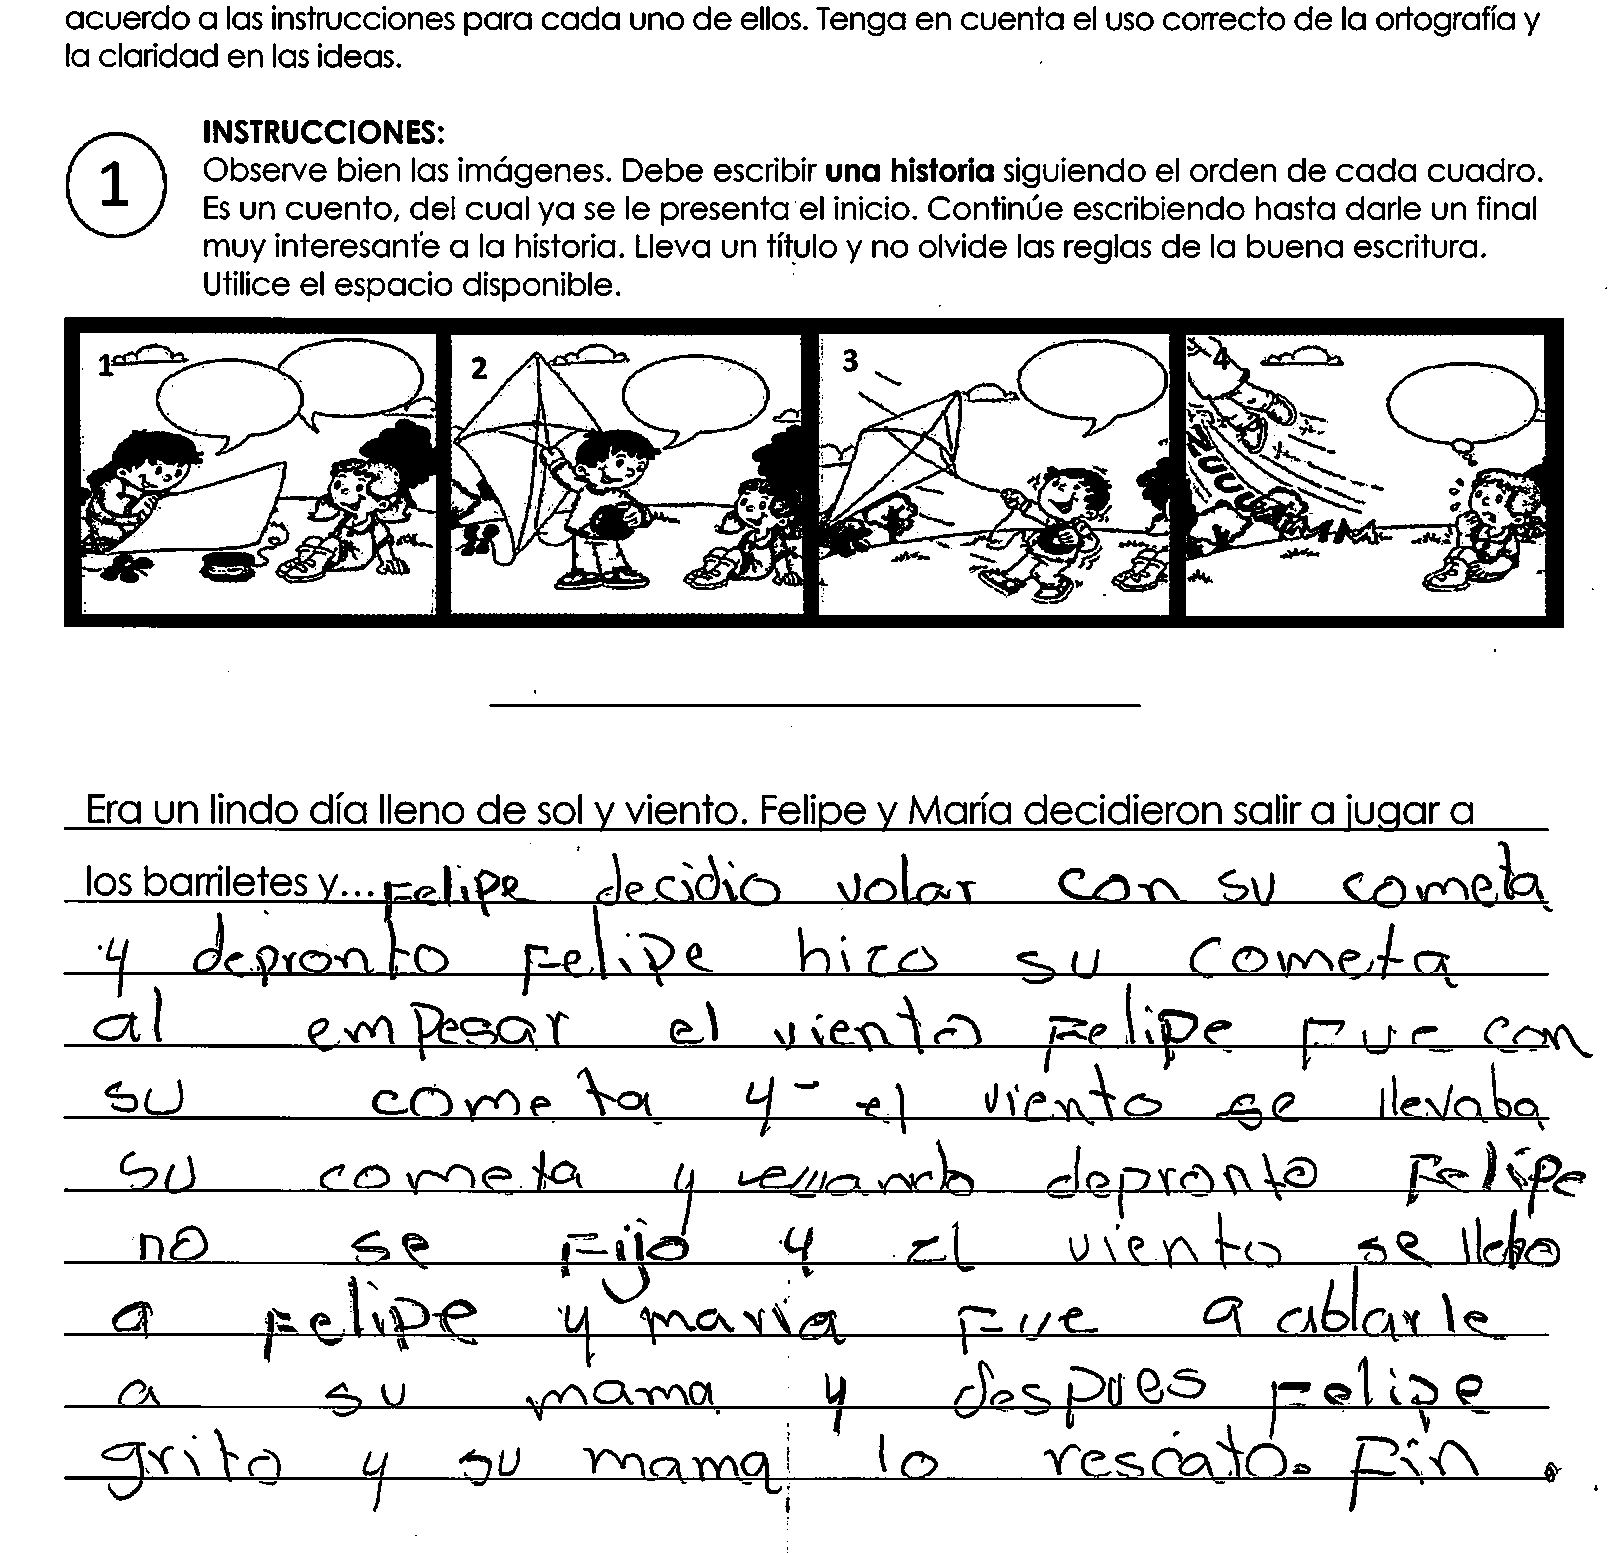 acuerdo a las instrucciones para cada uno de ellos. Tenga en cuenta el uso correcto de la ortografía y
la claridad en las ideas.
1
INSTRUCCIONES:
Observe bien las imágenes. Debe escribir una historia siguiendo el orden de cada cuadro.
Es un cuento, del cual ya se le presenta el inicio. Continúe escribiendo hasta darle un final
muy interesante a la historia. Lleva un título y no olvide las reglas de la buena escritura.
Utilice el espacio disponible.
1 2 3 4
ZUUUUMMM
Era un lindo día lleno de sol y viento. Felipe y María decidieron salir a jugar a
los barriletes y... Felipe decidio volar con su cometa
y depronto Felipe hizo su cometa
al empesar el viento Felipe Fue con
su cometa y el viento se llevaba
su cometa y depronto Felipe
no se Fijo y el viento se llebo
a Felipe y maria Fue a ablarle
a su mama y despues Felipe
grito y su mama lo rescato. Fin.